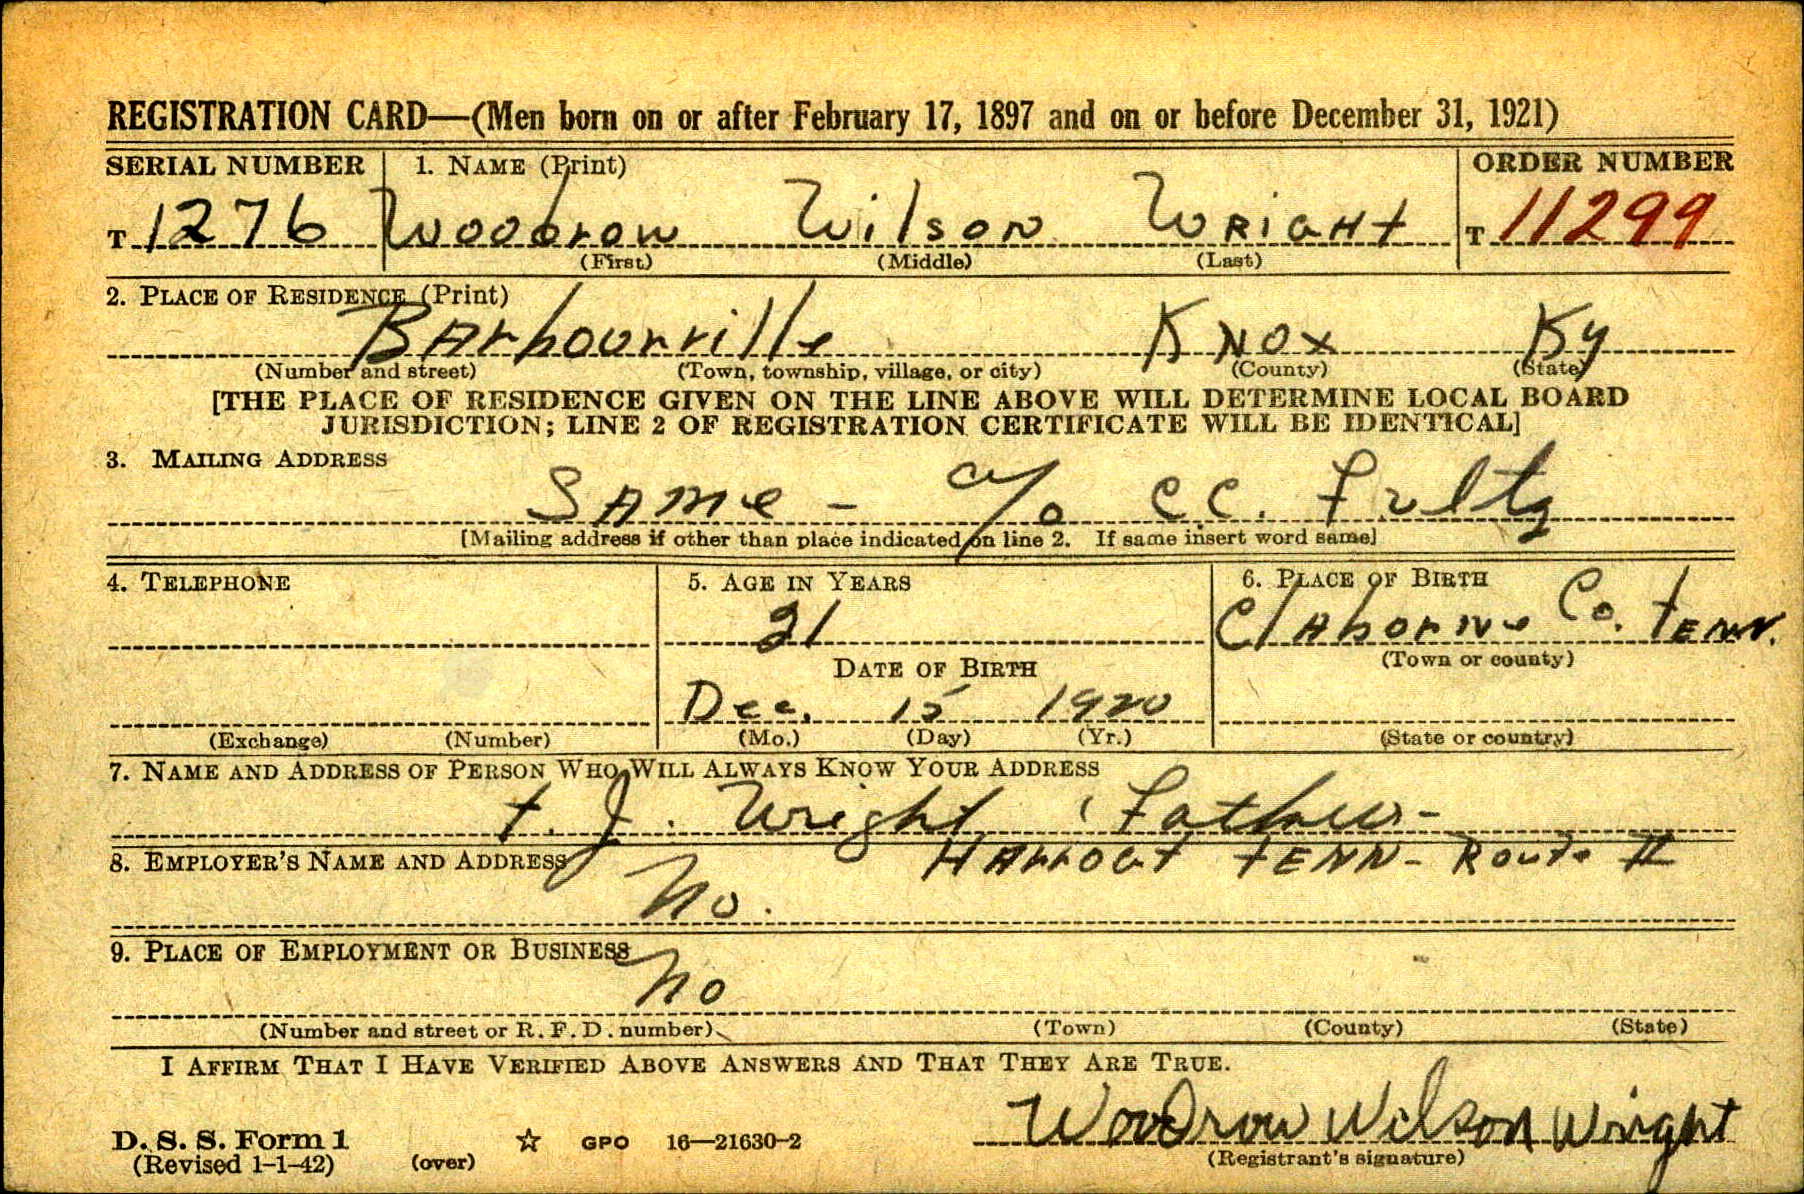 REGISTRATION CARD—(Men born on or after February 17, 1897 and on or before December 31, 1921)
SERIAL NUMBER 1. NAME (Print) ORDER NUMBER
T 1276 Woodrow Wilson Wright T 11299
(First) (Middle) (Last)
2. PLACE OF RESIDENCE (Print)
Barbourville Knox Ky
(Number and street) (Town, township, village, or city) (County) (State)
[THE PLACE OF RESIDENCE GIVEN ON THE LINE ABOVE WILL DETERMINE LOCAL BOARD
JURISDICTION; LINE 2 OF REGISTRATION CERTIFICATE WILL BE IDENTICAL]
3. MAILING ADDRESS
Same - c/o C.C. Fultz
[Mailing address if other than place indicated on line 2. If same insert word same]
4. TELEPHONE 5. AGE IN YEARS 6. PLACE OF BIRTH
21 Claborne Co. Tenn.
DATE OF BIRTH (Town or county)
Dec. 15 1920
(Exchange) (Number) (Mo.) (Day) (Yr.) (State or country)
7. NAME AND ADDRESS OF PERSON WHO WILL ALWAYS KNOW YOUR ADDRESS
T. J. Wright Father-
8. EMPLOYER'S NAME AND ADDRESS Tenn- Route II
No.
9. PLACE OF EMPLOYMENT OR BUSINESS
No
(Number and street or R. F. D. number) (Town) (County) (State)
I AFFIRM THAT I HAVE VERIFIED ABOVE ANSWERS AND THAT THEY ARE TRUE.
Woodrow Wilson Wright
D. S. S. Form 1 ☆ GPO 16—21630-2
(Revised 1-1-42) (over) (Registrant's signature)